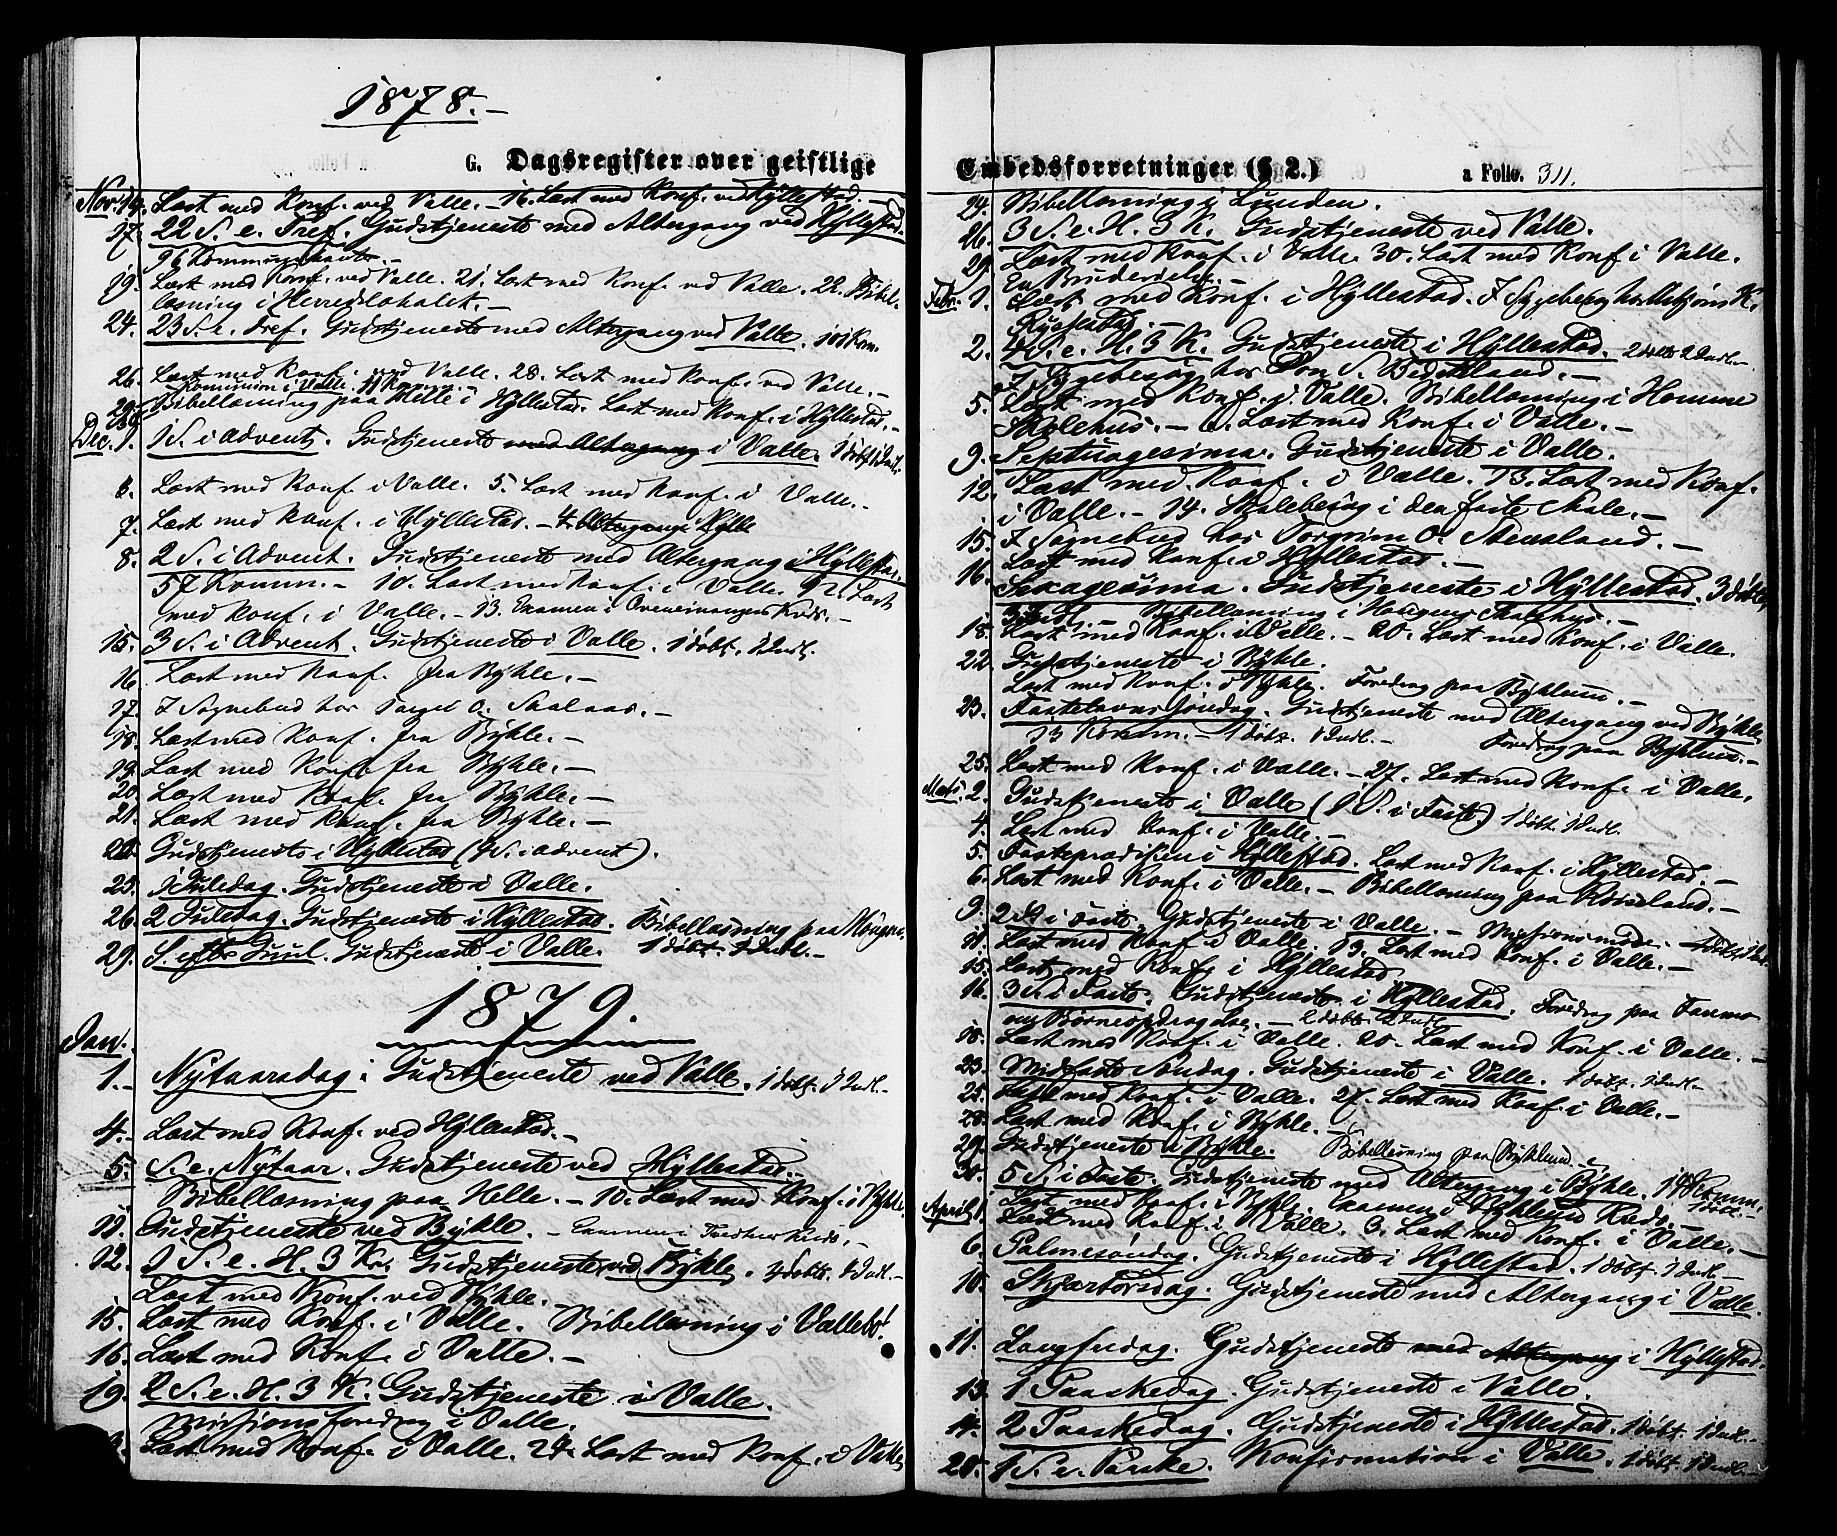 1878.-
G. Dagsregister over geistlige
Nov. 14. Læst med Konf. ved Valle. - 16. Læst med Konf. ved Hyllestad.-
17. 22 S. e. Tref. Gudstjeneste med Altergang ved Hyllestad.
96 Kommunikanter.-
19. Læst med Konf. ved Valle. 21. Læst med Konf. ved Valle. 22. Bibel-
læsning i Herredslokalet.-
24. 23 S. e. Tref. Gudstjeneste med Altergang ved Valle. 101 Kom.
26. Læst med Konf. ved Valle. 28. Læst med Konf. ved Valle.-
Kommunion i Valle. 11 Komm.-
29. Bibellæsning paa Helle i Hyllestad. Læst med Konf. i Hyllestad.-
Dec. 1. 1 S. i Advent. Gudstjeneste med Altergang i Valle. 1 døbt 1 Indl.
3. Læst med Konf. i Valle. 5. Læst med Konf. i Valle.-
7. Læst med Konf. i Hyllestad.- 4. Altergang i Hylle
8. 2 S. i Advent. Gudstjeneste med Altergang i Hyllestad.
57 Komm.- 10. Læst med Konf. i Valle. 12. Læst
med Konf. i Valle.- 13. Examen i Kreds.-
15. 3 S. i Advent. Gudstjeneste i Valle. 1 døbt. 1 Indl.
16 Læst med Konf. fra Bykle.-
17. I Sognebud hos Torgei O. Aalaas.-
18. Læst med Konf. fra Bykle.-
19. Læst med Konf. fra Bykle.-
20. Læst med Konf. fra Bykle.-
21. Læst med Konf. fra Bykle.-
22. Gudstjeneste i Hyllestad (4 S. i Advent).
25. 1 Juledag. Gudstjeneste i Valle.
26. 2 Juledag. Gudstjeneste i Hyllestad. Bibellæsning paa
29. S. efter Juul. Gudstjeneste i Valle. 1 døbt. 1 Indl.-
1879.
Jan.
1.- Nytaarsdag. Gudstjeneste ved Valle. 1 døbt. 1 Indl.-
4.- Læst med Konf. ved Hyllestad.-
5. S. e. Nytaar. Gudstjeneste ved Hyllestad.-
Bibellæsning paa Helle.- 10. Læst med Konf. i Bykle.
11. Gudstjeneste ved Bykle. - Examen i Kreds.-
12. 1 S. e. H. 3 K. Gudstjeneste ved Bykle. døbt. Indl.-
Læst med Konf. ved Bykle.-
15. Læst med Konf. i Valle. Bibellæsning i Vallebø.
16. Læst med Konf. i Valle.-
19. 2 S. e. H. 3 K. Gudstjeneste i Valle.
Missionsforedrag i Valle.
Læst med Konf. i Valle. Læst med Konf. i Valle.
Embedsforretninger (§ 2.) a Folio. 311.
24. Bibellæsning i Lunden.
26. 3 S. e. H. 3 K. Gudstjeneste ved Valle.
29. Læst med Konf. i Valle. 30. Læst med Konf. i Valle.
En Brudevielse.-
Febr. 1. Læst med Konf. i Hyllestad. I Sygebesøg hos K.
Rysestad.-
2. 4 S. e. H. 3 K. Gudstjeneste i Hyllestad. 2 døbt 2 Indl.-
I Sygebesøg hos S. -
5. Læst med Konf. i Valle. Bibellæsning i Homme
Skolehus.- 6. Læst med Konf. i Valle.-
9. Septuagesima. Gudstjeneste i Valle.
12. Læst med Konf. i Valle. 13. Læst med Konf.
i Valle.- 14. Skolebesøg i den faste Skole.-
15. I Sognebud hos Torgrim O. -
Læst med Konf. i Hyllestad.-
16. Sexagesima. Gudstjeneste i Hyllestad. 3 døbt,
3 Indl.- Bibellæsning i Skolehus.-
18. Læst med Konf. i Valle.- 20. Læst med Konf. i Valle.
22. Gudstjeneste i Bykle.
Læst med Konf. i Bykle. Foredrag paa Byklum.-
23. Fastelavns Søndag. Gudstjeneste med Altergang ved Bykle.
13 Komm.- 1 døbt. 1 Indl.- Foredrag paa Byklum.-
25. Læst med Konf. i Valle.- 27. Læst med Konf. i Valle.
Marts. 2. Gudstjeneste i Valle (1 S. i Faste) 1 døbt. 1 Indl.
4. Læst med Konf. i Valle.-
5. Fasteprædiken i Hyllestad. Læst med Konf. i Hyllestad.-
6. Læst med Konf. i Valle.- Bibellæsning paa -
9. 2 S. i Faste. Gudstjeneste i Valle.- Missionsmøde.
11. Læst med Konf. i Valle. 13. Læst med Konf. i Valle.-
15. Læst med Konf. i Hyllestad
16. 3 S. i Faste. Gudstjeneste i Hyllestad. Foredrag paa
om Børneopdragelse.- 2 døbt. 2 Indl.
18. Læst med Konf. i Valle. 20. Læst med Konf. i Valle.-
23. Midfaste Søndag. Gudstjeneste i Valle. 1 døbt. 1 Indl.-
25. Læst med Konf. i Valle. 27. Læst med Konf. i Valle.-
28. Læst med Konf. i Bykle.-
29. Gudstjeneste i Bykle. Bibellæsning paa Byklum.-
30. 5 S. i Faste. Gudstjeneste med Altergang i Bykle. Komm.
Læst med Konf. i Bykle. Examen i Kreds.- 1 døbt.-
April 1. Læst med Konf. i Valle. 3. Læst med Konf. i Valle.-
6. Palmesøndag. Gudstjeneste i Hyllestad. 1 døbt. 1 Indl.-
10. Skjærtorsdag. Gudstjeneste med Altergang i Valle.
11. Langfredag. Gudstjeneste med Altergang i Hyllestad.
13. 1 Paaskedag. Gudstjeneste i Valle.
14. 2 Paaskedag. Gudstjeneste i Hyllestad. 1 døbt. 1 Indl.-
20. 1 S. e. Paaske. Konfirmation i Valle. 1 døbt. 1 Indl.-